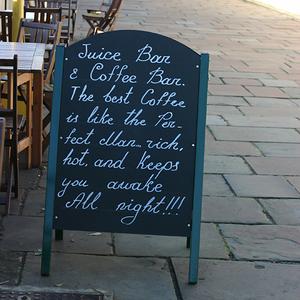 Juice Bar
& Coffee Bar.
The best Coffee
is like the Per-
fect Man-rich,
hot, and Keeps
you awake
All night!!!